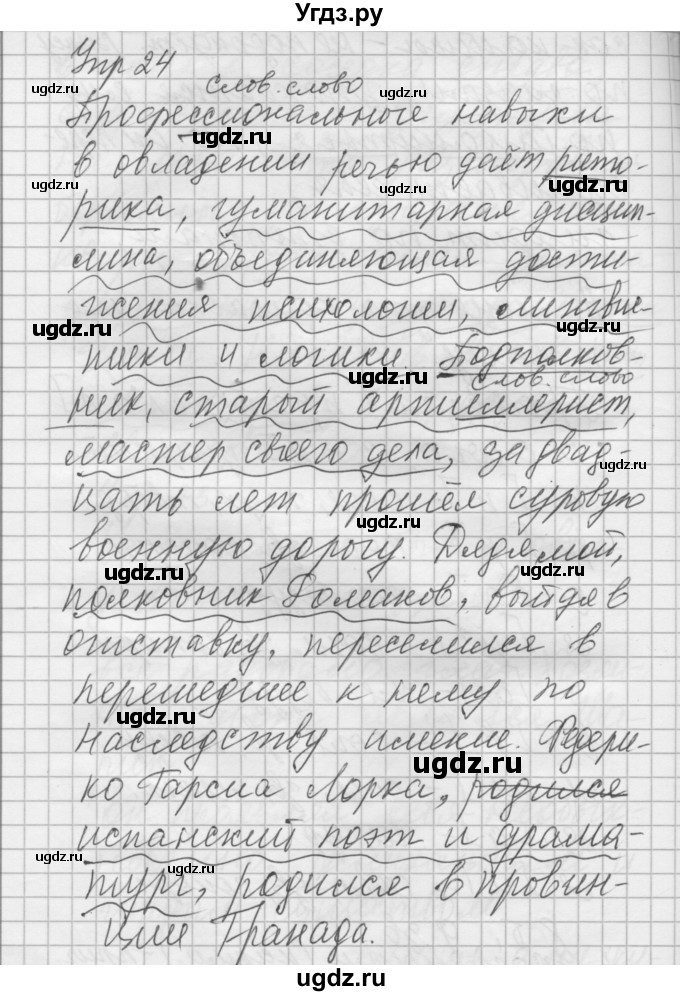 Угдз.ру
Упр 24
слов. слово
Профессиональные навыки
в овладении речью даёт рито-
рика, гуманитарная дисцип-
лина, объединяющая дости-
жения психологии, лингвис-
тики и логики. Подполков-
слов. слово
ник, старый артиллерист,
мастер своего дела, за двад-
цать лет прошёл суровую
военную дорогу. Дядя мой,
полковник Романов, выйдя в
отставку, переселился в
перешедшее к нему по
наследству имение. Федери-
ко Гарсиа Лорка, родился
испанский поэт и драма-
тург, родился в провин-
ции Гранада.
ugdz.ru